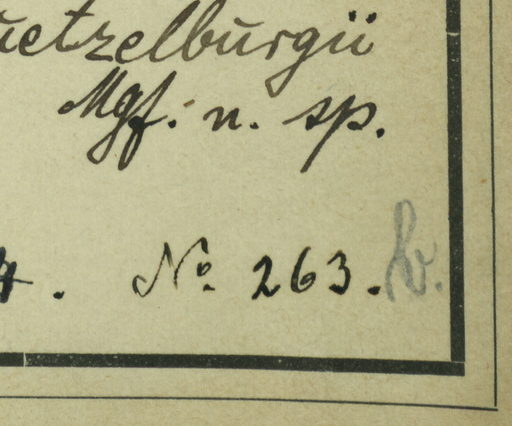 uetzelburgii
Mgf. n. sp.
4. No. 263. b.